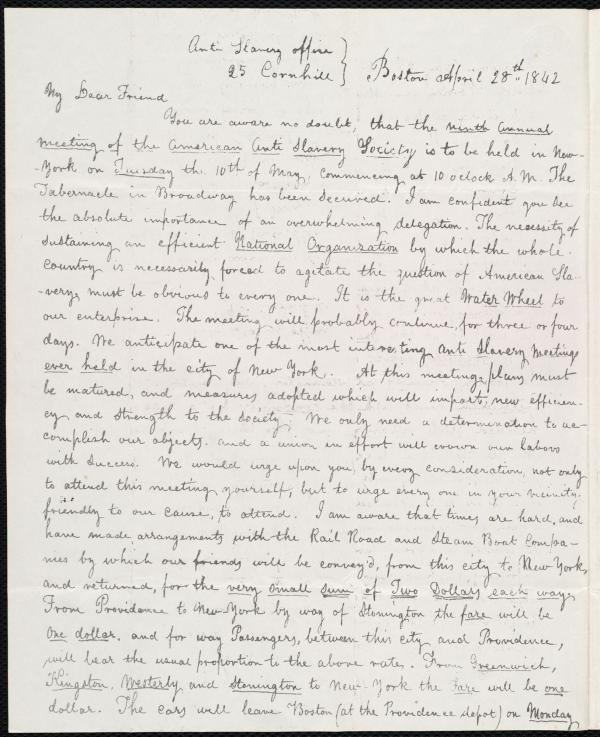 Anti Slavery office }
25 Cornhill } Boston April 28th 1842
My Dear Friend
You are aware no doubt, that the ninth annual
meeting of the American Anti Slavery Society is to be held in New-
-York on Tuesday the 10th of May, commencing at 10 oclock A.M. The
Tabernacle in Broadway has been secured. I am confident you see
the absolute importance of an overwhelming delegation. The necessity of
sustaining an efficient National Organization by which the whole
country is necessarily forced to agitate the question of American Sla-
-very, must be obvious to every one. It is the great Water Wheel to
our enterprise. The meeting will probably continue, for three or four
days. We anticipate one of the most interesting Anti Slavery Meetings
ever held in the city of New York. At this meeting plans must
be matured, and measures adopted which will impart, new efficien-
cy and strength to the society. We only need a determination to ac-
complish our objects. and a union in effort will crown our labors
with success. We would urge upon you, by every consideration, not only
to attend this meeting yourself, but to urge every one in your vicinity.
friendly to our cause, to attend. I am aware that times are hard, and
have made arrangements with the Rail Road and Steam Boat Compa-
nies by which our friends will be convey'd, from this city to New York,
and returned, for the very small sum of Two Dollars each way.
From Providence to New York by way of Stonington the fare will be
One dollar. and for way Passengers, between this city and Providence,
will bear the usual proportion to the above rates. From Greenwich,
Kingston, Westerly and Stonington to New-York the fare will be one
dollar. The cars will leave Boston (at the Providence depot) on Monday